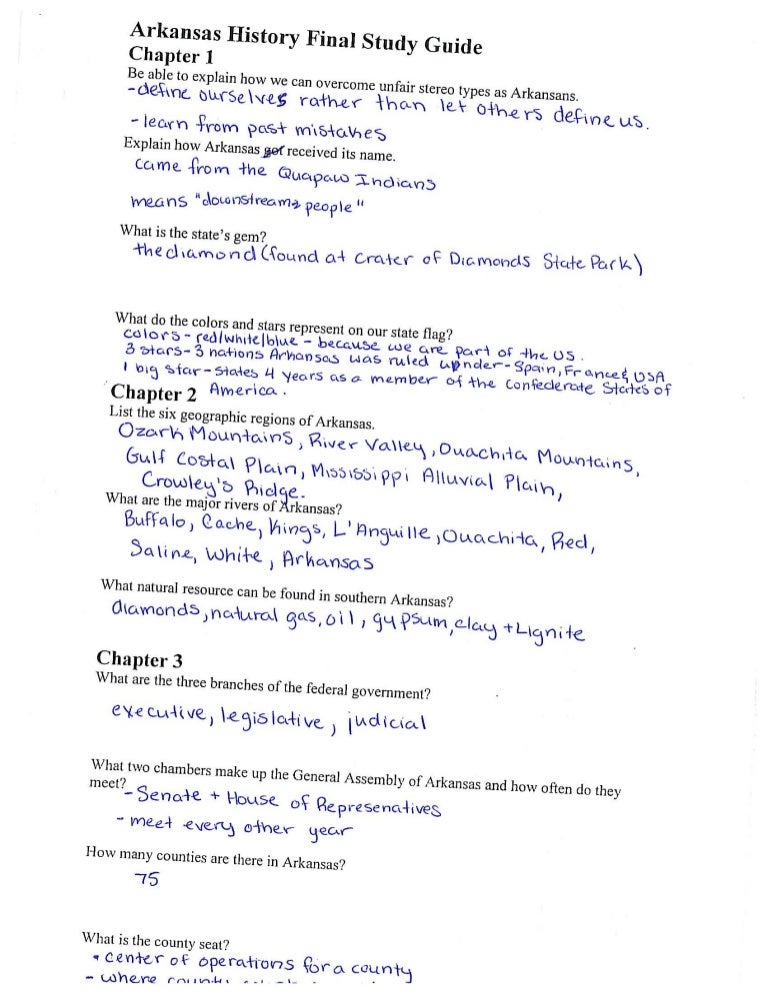 Arkansas History Final Study Guide
Chapter 1
Be able to explain how we can overcome unfair stereo types as Arkansans.
-define ourselves rather than let others define us.
-learn from past mistakes
Explain how Arkansas got received its name.
came from the Quapaw Indians
means "downstream people"
What is the state's gem?
the diamond (found at Crater of Diamonds State Park)
What do the colors and stars represent on our state flag?
colors - red/white/blue - because we are part of the US.
3 stars - 3 nations Arkansas was ruled under - Spain, France & USA
1 big star - states 4 years as a member of the Confederate States of
America.
Chapter 2
List the six geographic regions of Arkansas.
Ozark Mountains, River Valley, Ouachita Mountains,
Gulf Costal Plain, Mississippi Alluvial Plain,
Crowley's Ridge.
What are the major rivers of Arkansas?
Buffalo, Cache, Kings, L'Anguille, Ouachita, Red,
Saline, White, Arkansas
What natural resource can be found in southern Arkansas?
diamonds, natural gas, oil, gypsum, clay + Lignite
Chapter 3
What are the three branches of the federal government?
executive, legislative, judicial
What two chambers make up the General Assembly of Arkansas and how often do they
meet?
- Senate + House of Represenatives
- meet every other year
How many counties are there in Arkansas?
75
What is the county seat?
- center of operations for a county
- where